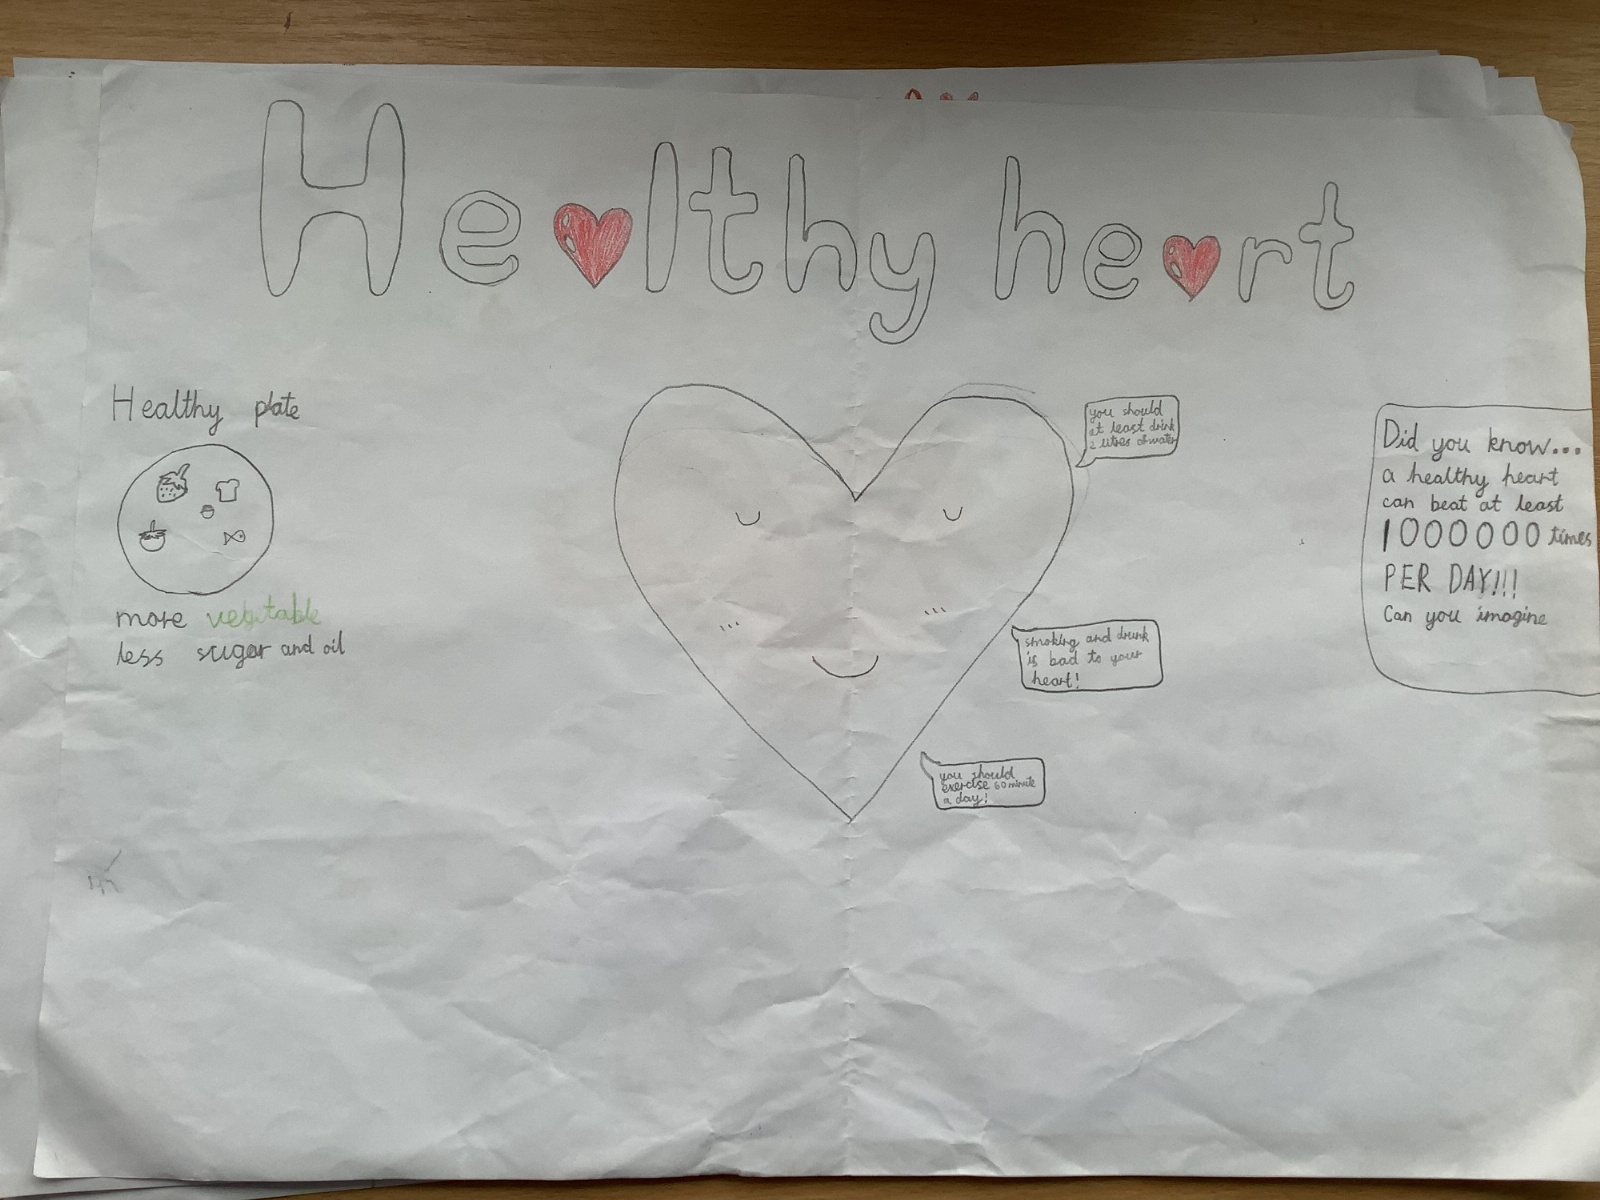 Healthy heart
Healthy plate
more vegitable
less sugar and oil
you should
at least drink
2 litres of water
smoking and drunk
is bad to your
heart!
you should
exercise 60 minute
a day!
Did you know...
a healthy heart
can beat at least
1000000 times
PER DAY!!!
Can you imagine